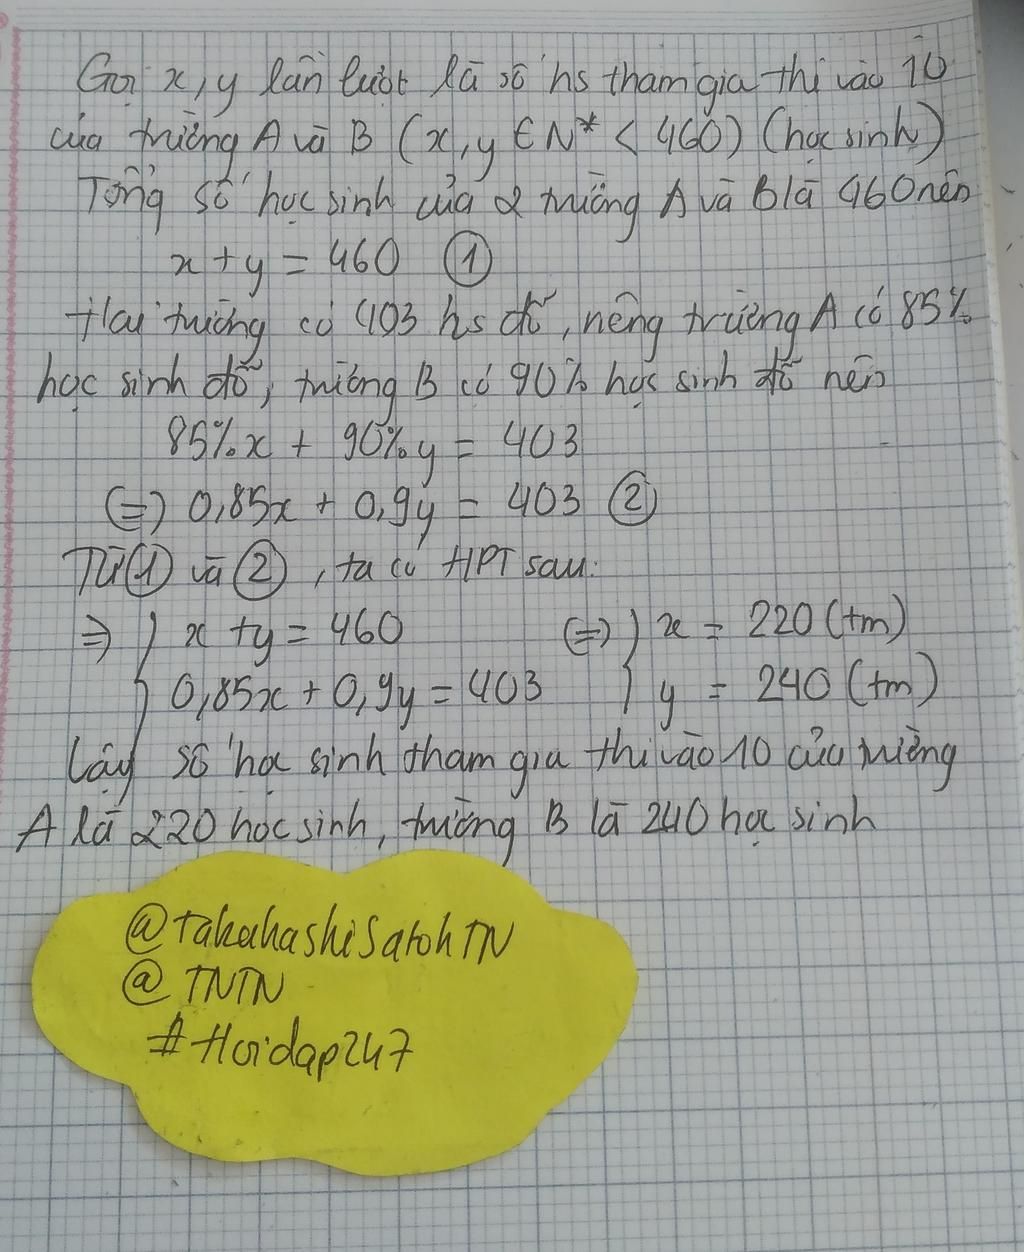 Gọi x, y lần lượt là số hs tham gia thi vào 10
của trường A và B (x, y ∈ N* < 460) (học sinh)
Tổng số học sinh của 2 trường A và B là 460 nên
x + y = 460 ①
Hai trường có 403 hs đỗ, riêng trường A có 85%
học sinh đỗ, trường B có 90% học sinh đỗ nên
85%x + 90%y = 403
(=) 0,85x + 0,9y = 403 ②
Từ ① và ②, ta có HPT sau:
=> { x + y = 460 (=) { x = 220 (tm)
0,85x + 0,9y = 403 y = 240 (tm)
Vậy số học sinh tham gia thi vào 10 của trường
A là 220 học sinh, trường B là 240 học sinh
@takahashiSatohTN
@TNTN
#Hoidap247